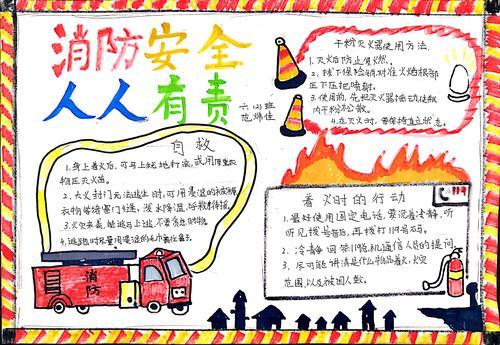 消防安全
人人有责
六(4)班
干粉灭火器使用方法
1.灭火后防止复燃。
2.拔下保险销对准火焰根部
压下压把喷射。
3.使用前,先把灭火器
内干粉松散。
4.在灭火时,要保持直立状态。
自救
1.身上着火后,可马上就地打滚,或用厚重衣
物压灭火苗。
2.大火封门无法逃生时,可用浸湿的被褥
衣物等堵塞门缝,泼水降温,呼救待援。
3.火灾来袭,能逃马上逃,不要贪恋财物。
4.逃跑时尽量用浸湿的毛巾
消防
着火时的行动
119
1.最好使用固定电话,要沉着冷静,听
听见拨号音后,再拨打119号码。
2.冷静回答119接机通信人员的提问
3.尽可能讲清是什么物品着火,火灾
范围,以及被困人数。